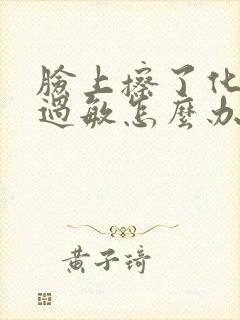 臉上擦了化
過敏怎麼办
黄子琦